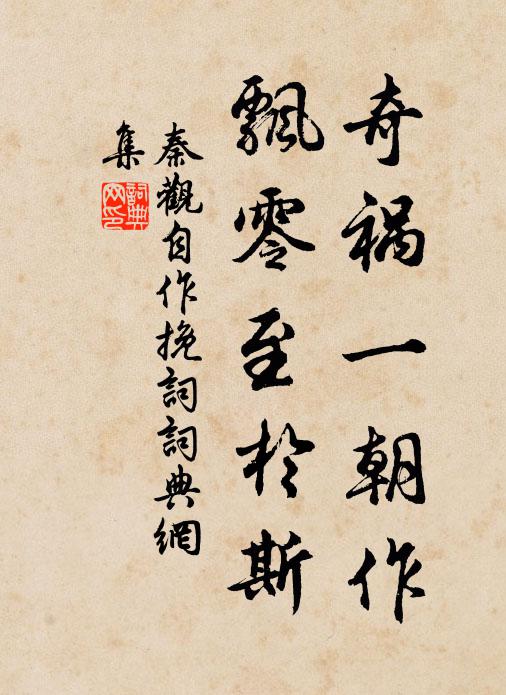 奇祸一朝作
飄零至於斯
秦觀自作挽詞詞典網
集
詞典网印